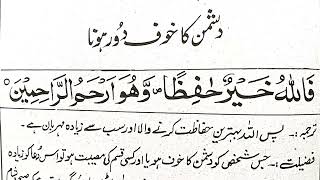 دشمن کا خوف دُور ہونا
فَاللّٰهُ خَيْرٌ حٰفِظًا ۪ وَّهُوَ اَرْحَمُ الرّٰحِمِيْنَ
ترجمہ :۔ پس اللہ بہترین حفاظت کرنے والا اور سب سے زیادہ مہربان ہے۔
فضیلت :۔ جس شخص کو دشمن کا خوف ہو یا اور کسی قسم کی مصیبت ہو تو اس دُعا کو زیادہ